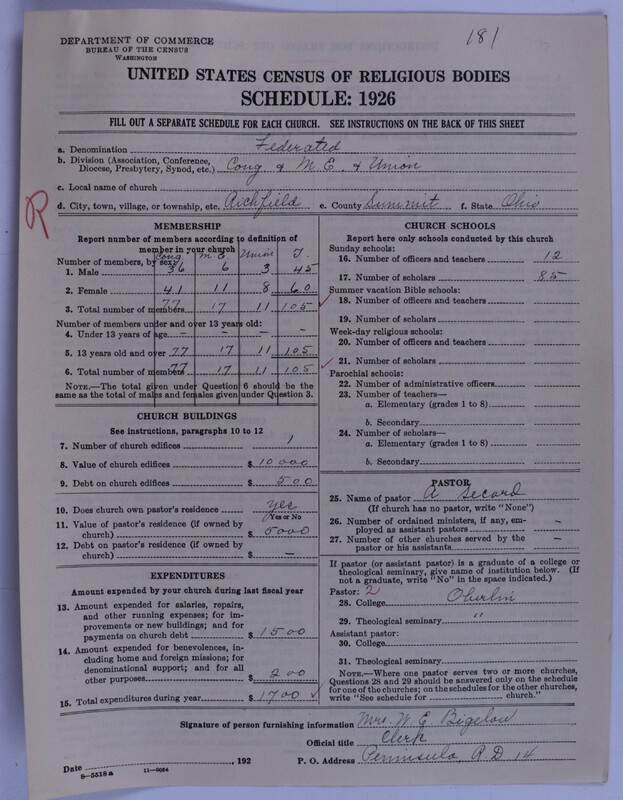 181
DEPARTMENT OF COMMERCE
BUREAU OF THE CENSUS
WASHINGTON
UNITED STATES CENSUS OF RELIGIOUS BODIES
SCHEDULE: 1926
FILL OUT A SEPARATE SCHEDULE FOR EACH CHURCH. SEE INSTRUCTIONS ON THE BACK OF THIS SHEET
a. Denomination Federated
b. Division (Association, Conference, Diocese, Presbytery, Synod, etc.) Cong & M. E. & Union
c. Local name of church
d. City, town, village, or township, etc. Richfield e. County Summit f. State Ohio
R
MEMBERSHIP
Report number of members according to definition of
member in your church
Cong M E Union T.
Number of members, by sex:
1. Male 36 6 3 45
2. Female 41 11 8 60
3. Total number of members 77 17 11 105
Number of members under and over 13 years old:
4. Under 13 years of age – – – –
5. 13 years old and over 77 17 11 105
6. Total number of members 77 17 11 105
NOTE.—The total given under Question 6 should be the
same as the total of males and females given under Question 3.
CHURCH BUILDINGS
See instructions, paragraphs 10 to 12
7. Number of church edifices 1
8. Value of church edifices $ 10000
9. Debt on church edifices $ 500
10. Does church own pastor's residence yes
Yes or No
11. Value of pastor's residence (if owned by
church) $ 5000
12. Debt on pastor's residence (if owned by
church) $ –
EXPENDITURES
Amount expended by your church during last fiscal year
13. Amount expended for salaries, repairs,
and other running expenses; for im-
provements or new buildings; and for
payments on church debt $ 1500
14. Amount expended for benevolences, in-
cluding home and foreign missions; for
denominational support; and for all
other purposes $ 200
15. Total expenditures during year $ 1700 ✓
CHURCH SCHOOLS
Report here only schools conducted by this church
Sunday schools:
16. Number of officers and teachers 12
17. Number of scholars 85
Summer vacation Bible schools:
✓ 18. Number of officers and teachers
19. Number of scholars
Week-day religious schools:
20. Number of officers and teachers
✓ 21. Number of scholars
Parochial schools:
22. Number of administrative officers
23. Number of teachers—
a. Elementary (grades 1 to 8)
b. Secondary
24. Number of scholars—
a. Elementary (grades 1 to 8)
b. Secondary
PASTOR
25. Name of pastor A Secord
(If church has no pastor, write "None")
26. Number of ordained ministers, if any, em-
ployed as assistant pastors –
27. Number of other churches served by the
pastor or his assistants –
If pastor (or assistant pastor) is a graduate of a college or
theological seminary, give name of institution below. (If
not a graduate, write "No" in the space indicated.)
Pastor: 2
28. College Oberlin
29. Theological seminary "
Assistant pastor:
30. College
31. Theological seminary
NOTE.—Where one pastor serves two or more churches,
Questions 28 and 29 should be answered only on the schedule
for one of the churches; on the schedules for the other churches,
write "See schedule for church."
Signature of person furnishing information Mrs. W. E. Bigelow
Official title Clerk
Date , 192 P. O. Address Peninsula, R D 14
8—5518 a 11—9054